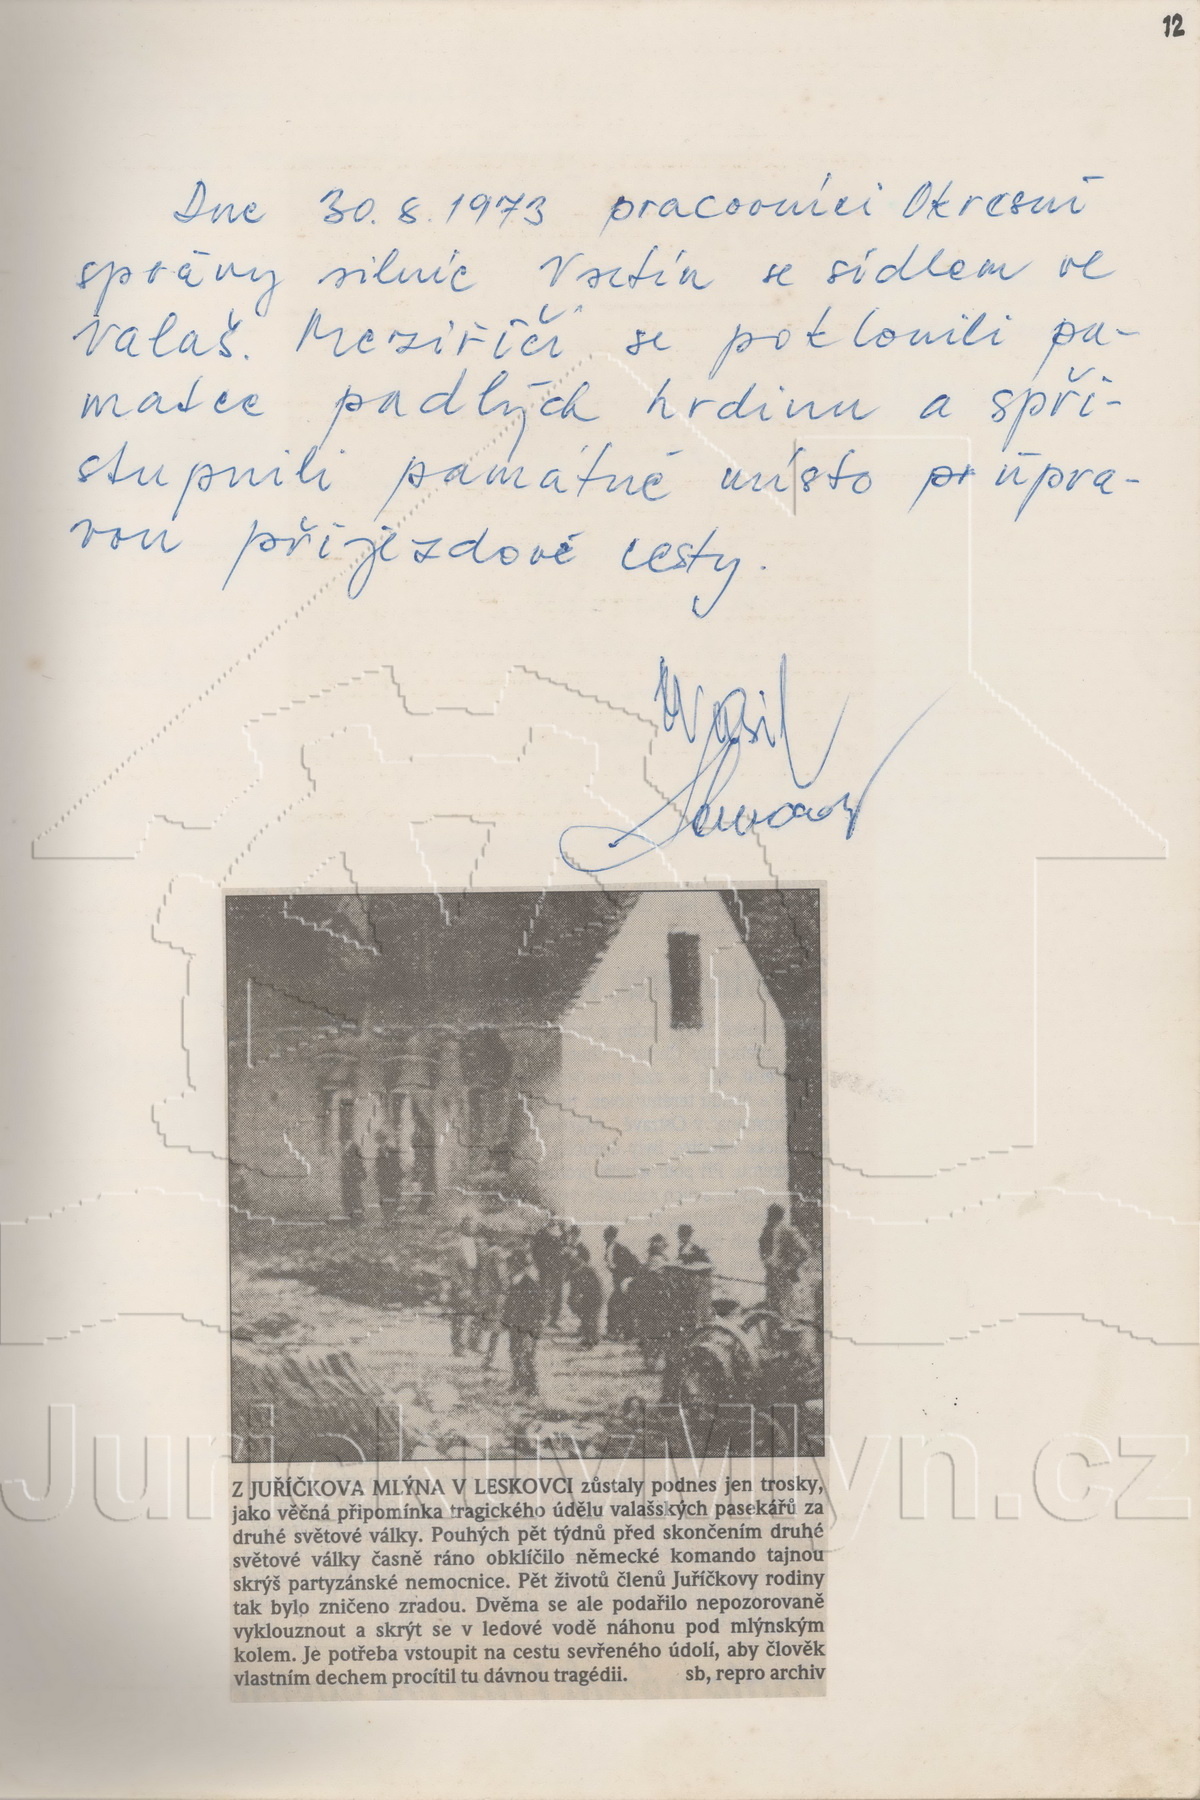 12
Dne 30. 8. 1973 pracovníci Okresní
správy silnic Vsetín se sídlem ve
Valaš. Meziříčí se poklonili pa-
matce padlých hrdinu a spří-
stupnili památné místo úpra-
vou příjezdové cesty.
Z JUŘÍČKOVA MLÝNA V LESKOVCI zůstaly podnes jen trosky,
jako věčná připomínka tragického údělu valašských pasekářů za
druhé světové války. Pouhých pět týdnů před skončením druhé
světové války časně ráno obklíčilo německé komando tajnou
skrýš partyzánské nemocnice. Pět životů členů Juříčkovy rodiny
tak bylo zničeno zradou. Dvěma se ale podařilo nepozorovaně
vyklouznout a skrýt se v ledové vodě náhonu pod mlýnským
kolem. Je potřeba vstoupit na cestu sevřeného údolí, aby člověk
vlastním dechem procítil tu dávnou tragédii. sb, repro archiv
JurickuvMlyn.cz